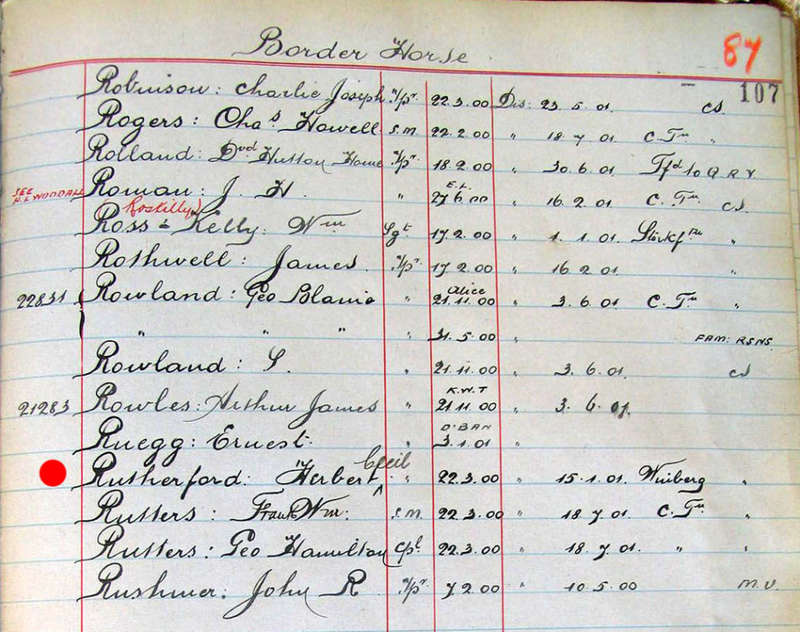 Border Horse 84
107
Robinson: Charlie Joseph T/pr 22.3.00 Dis: 23.5.01. CS
Rogers: Chas Howell S.M. 22.2.00 " 18.7.01 C. Tn "
Rolland: Dvd Hutton Home T/pr 18.2.00 " 30.6.01 Tfd to Q R V
E.L.
SEE
Roman: J. H. " 27.6.00 " 16.2.01 C. Tn CS
Roskilly?
Ross-Kelly: Wm Sgt 17.2.00 " 1.1.01 "
Rothwell: James T/pr 17.2.00 " 16.2.01 "
Alice
22831 Rowland: Geo " 21.11.00 " 3.6.01 C. Tn "
" " " " 31.5.00 " FAM: RSNS
Rowland: S. " 21.11.00 " 3.6.01. CS
K.W.T
21283 Rowles: Arthur James " 21.11.00 " 3.6.01.
D'BAN
Ruegg: Ernest " 3.1.01 "
Rutherford: Herbert Cecil " 22.3.00 " 15.1.01 Winberg "
Rutters: Frank Wm: S.M. 22.3.00 " 18.7.01 C. Tn "
Rutters: Geo Hamilton Cpl 22.3.00 " 18.7.01. " "
Rushmer: John R T/pr 7.2.00 " 10.5.00 M.U.